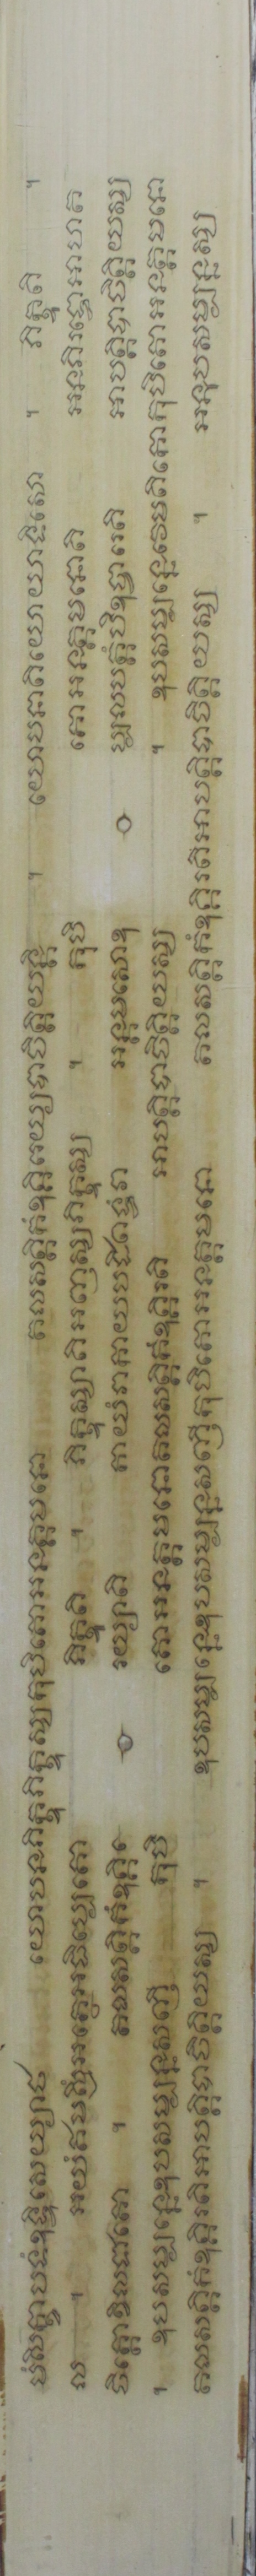 មំសិក្ខាបទំឧទ្ទិសេយ្យាថ យោបនភិក្ខុភិក្ខុស្សកុបិតោអនត្តមនោ តលសត្តិកំឧគ្គិរេយ្យបាចិត្តិយន្តិ ។ យោបនាតិយោយាទិសោ ។ ភិក្ខូតិ ។
ល ។ អយំឥមស្មឹអត្ថេអធិប្បេតោ ភិក្ខូតិ ។ ភិក្ខុស្សាតិអញស្សភិក្ខុស្ស ។ កុបិ តោអនត្តមនោតិ អនភិរទ្ធោអាហត
ចិត្តោខិលជាតោ ។ តលសត្តិកំឧគ្គិរេ រយ្យាតិ កាយំវាកាយបដិពទ្ធំវា អន្តមសោឧ ប្បលបត្តំបិឧច្ចារេតិ អាបត្តិបាចិត្តិយស្ស
។ ឧបសម្បន្នេឧបសម្បន្នសញី កុបិ តោអនត្តមនោតលសត្តិកំឧគ្គិរតិ អាបត្តិបាចិត្តិយស្ស ។ ឧបសម្បន្នេវេមតិកោកុបិតោអនត្តមនោ
តលសត្តិកំឧគ្គិរតិអាបត្តិបាចិត្តិយស្ស ។ ឧបសម្បន្នេឧបសម្បន្នសញីកុបិតោអនត្តមនោ តលសត្តិកំឧគ្គិរតិអាបត្តិបាចិត្តិយស្ស ។ អនុបសម្បន្នស្ស